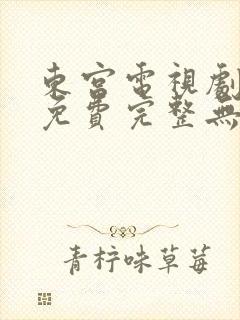 東宮電視劇
免費完整無
青柠味草莓